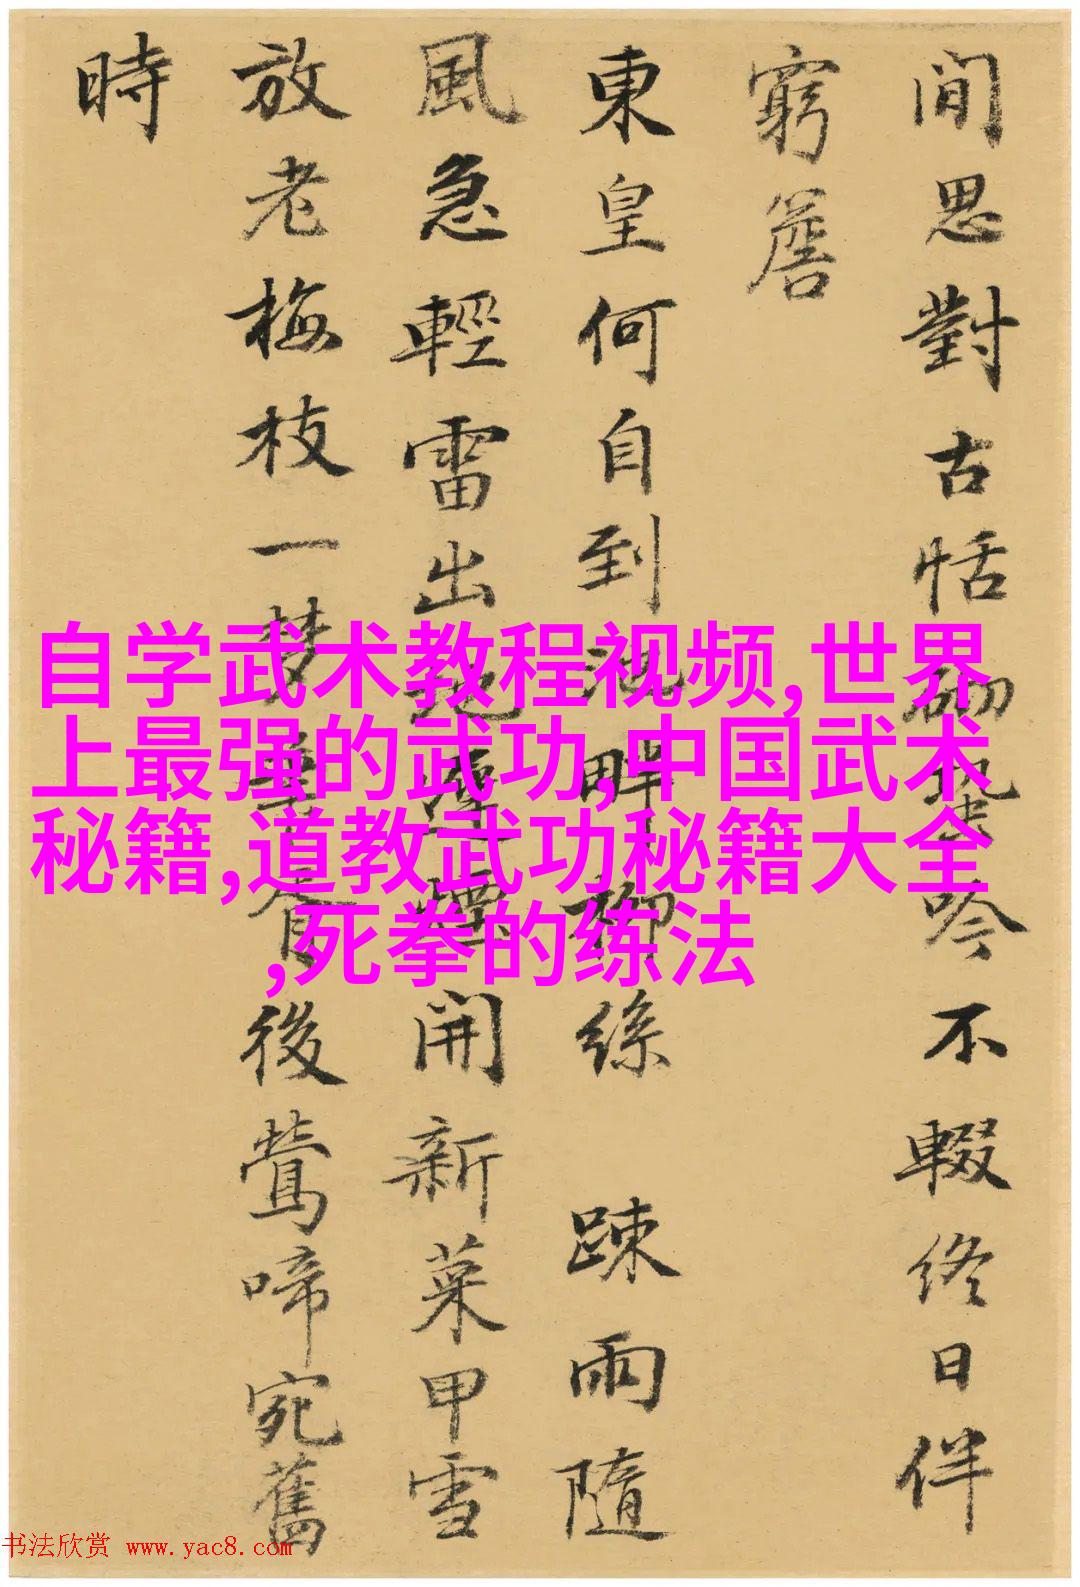 閒思對古恬砌蛩吟不輟終日伴
窮簷
東皇何自到畔柳絲踈雨隨
風急輕雷出地遲煙開新菜甲雪
放老梅枝一梦後鶯啼宛舊
時
自学武术教程视频,世界
上最强的武功,中国武术
秘籍,道教武功秘籍大全
,死拳的练法
书法欣赏 www.yac8.com